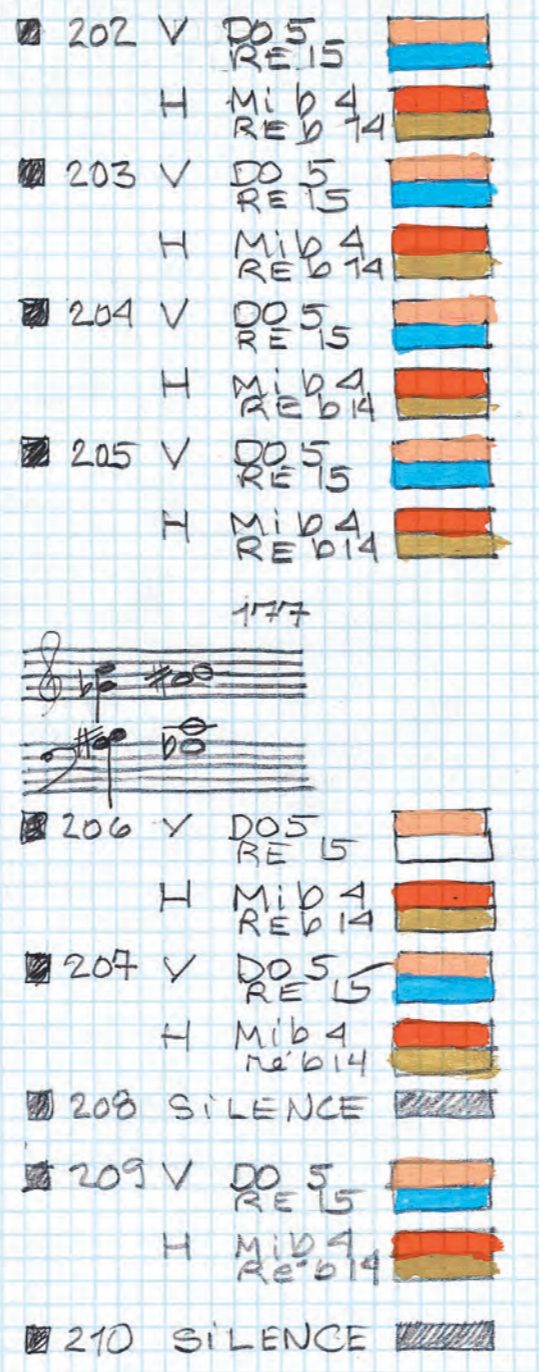 202 V DO 5
RE 15
H Mi b 4
RE b 14
203 V DO 5
RE 15
H Mi b 4
RE b 14
204 V DO 5
RE 15
H Mi b 4
RE b 14
205 V DO 5
RE 15
H Mi b 4
RE b 14
177
206 V DO 5
RE 15
H Mi b 4
RE b 14
207 V DO 5
RE 15
H Mi b 4
ré b 14
208 SiLENCE
209 V DO 5
RE 15
H Mi b 4
Ré b 14
210 SiLENCE